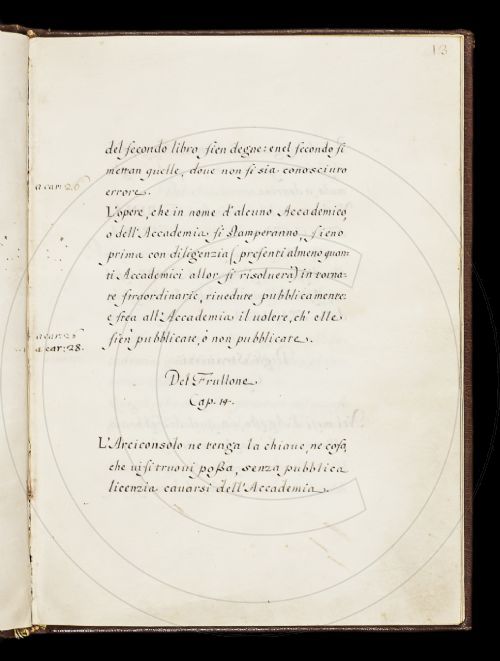 13
del secondo libro, sien degne: e nel secondo si
mettan quelle, doue non si sia conosciuto
a car: 26
errore.
L'opere, che in nome d'alcuno Accademico,
o dell'Accademia si stamperanno, sieno
prima con diligenzia (presenti almeno quan-
ti Accademici allor si risoluerà) in torna-
te straordinarie, riuedute pubblicamente:
e stea all'Accademia il uolere, ch' elle
a car: 26
sien pubblicate, ò non pubblicate.
a car: 28.
Del Frullone
Cap. 14.
L'Arciconsolo ne tenga la chiaue, ne cosa,
che ui si truoui possa, senza pubblica
licenzia cauarsi dell'Accademia.